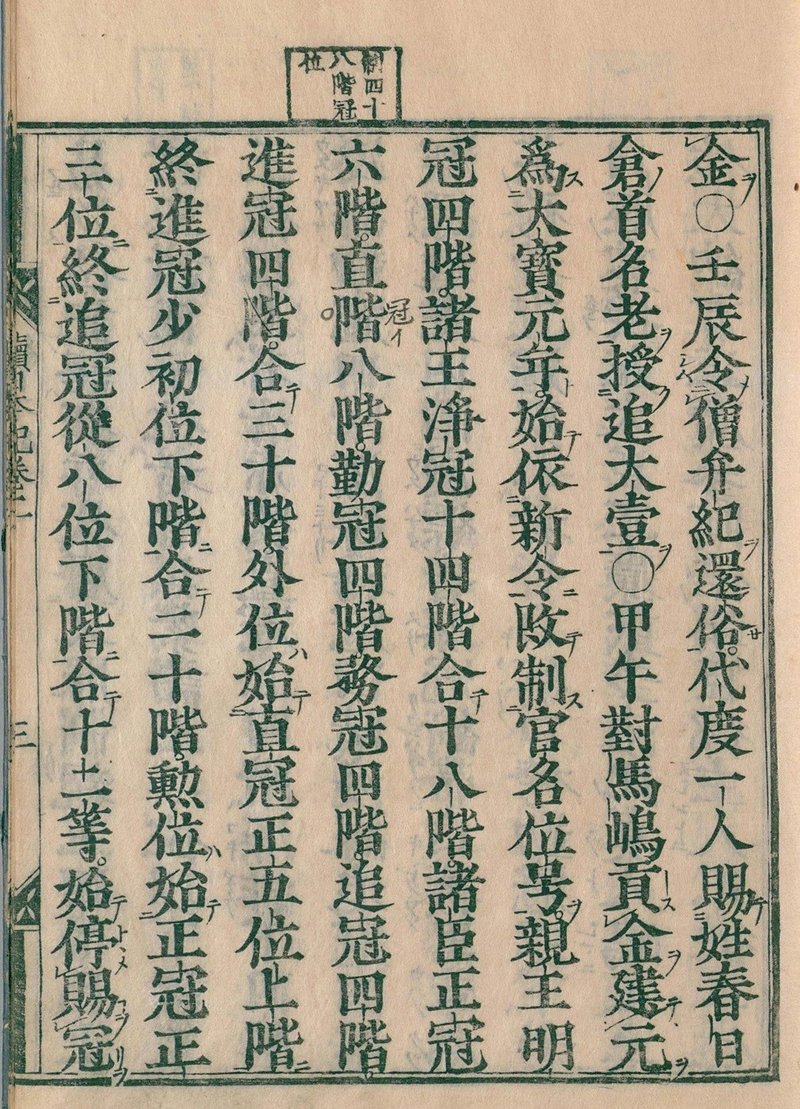 制四十
八階冠
位
金○壬辰令僧弁紀還俗代度一人賜姓春日
倉首名老授追大壹○甲午對馬嶋貢金建元
爲大寶元年始依新令改制官名位号親王明
冠四階諸王淨冠十四階合十八階諸臣正冠
六階直階八階勤冠四階務冠四階追冠四階
冠イ
進冠四階合三十階外位始直冠正五位上階
終進冠少初位下階合二十階勲位始正冠正
三位終追冠從八位下階合十二等始停賜冠
續日本紀卷二
三